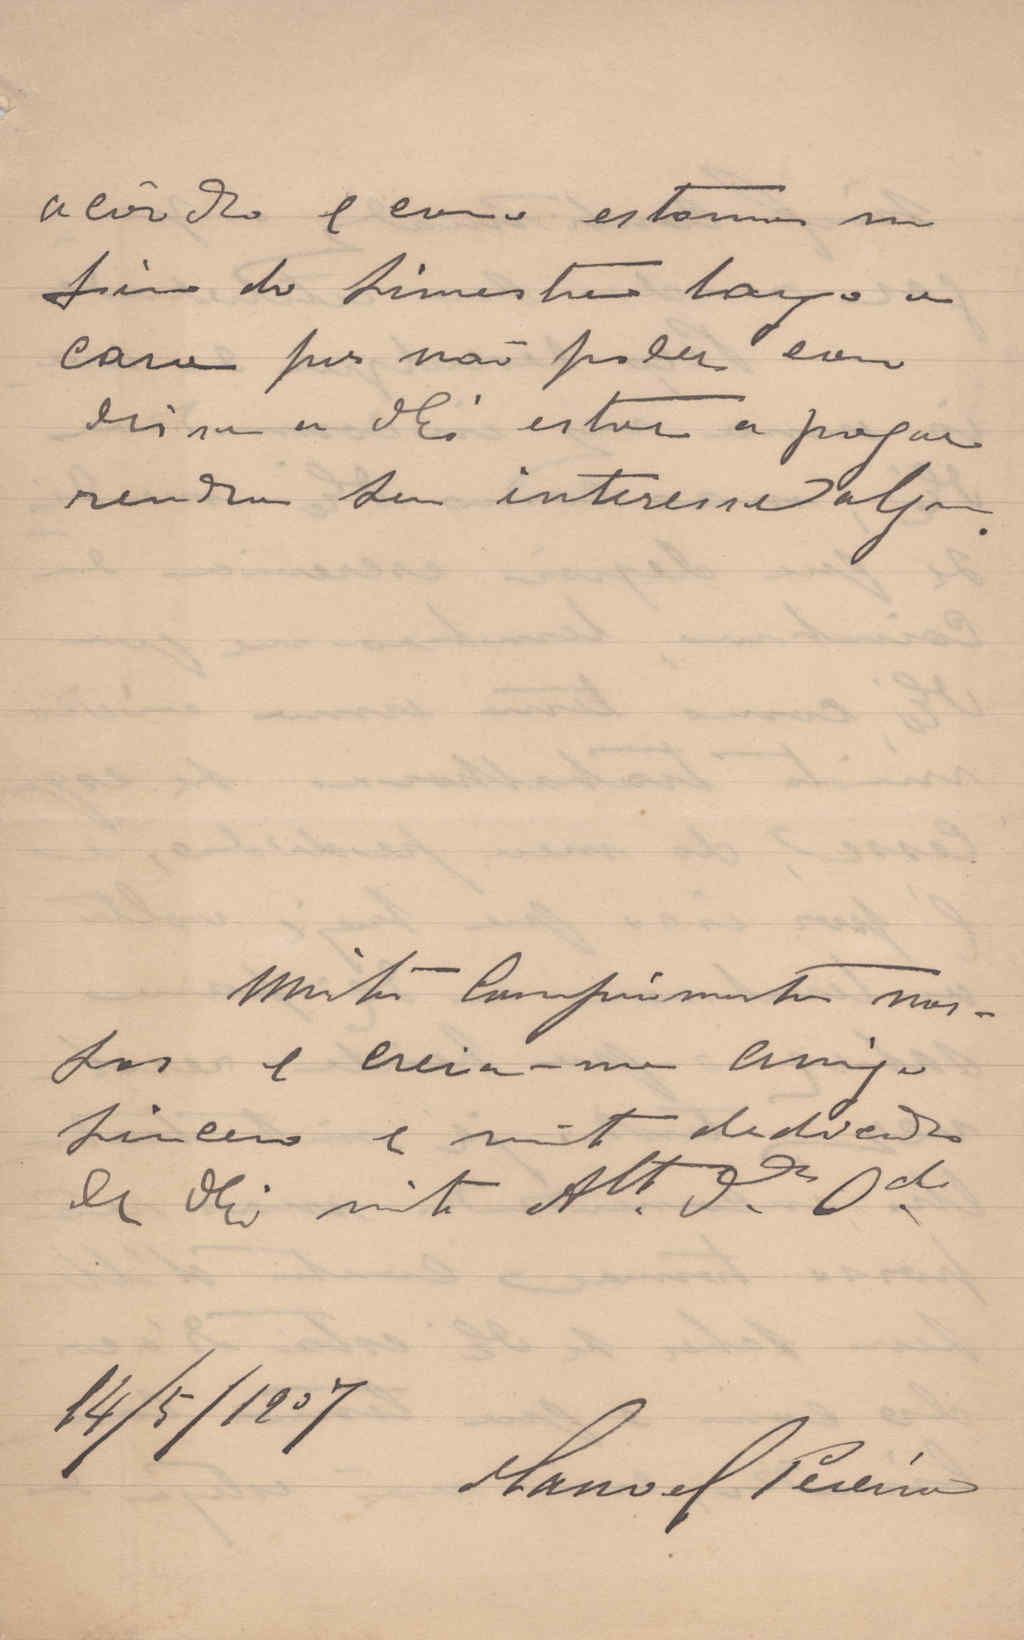 acôrdo e como estamos no
fim do simestre largo a
casa por não poder con
tinua a V. Ex.ª estar a pagar
renda sem interesse algum.
Muitos Comprimentos nos-
sos e creia-me amigo
sincero e mt dedicado
de V. Ex.ª mto Att. V.or O.do
14/5/1907
Manoel Pereira